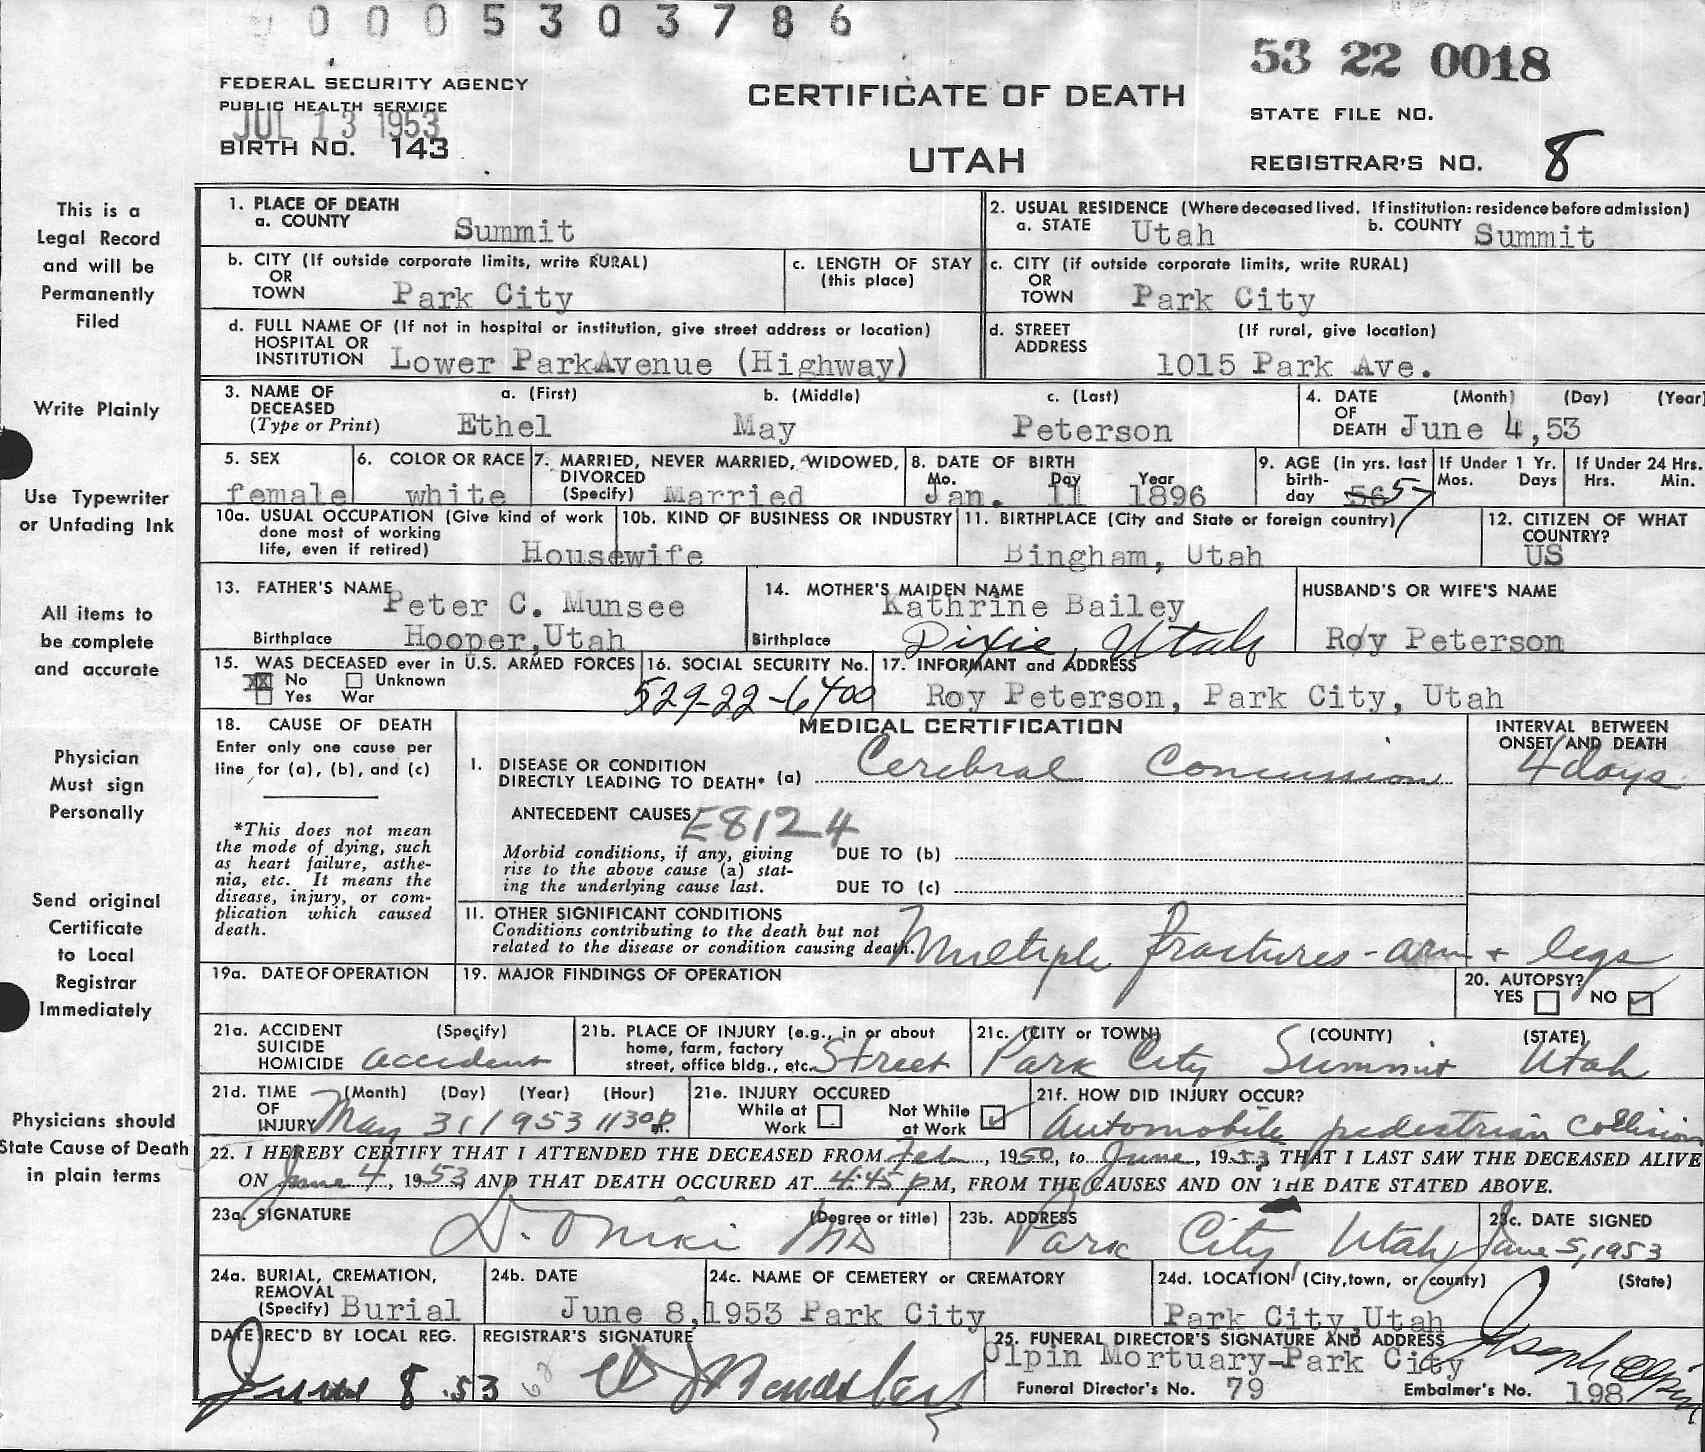 0005303786
53 22 0018
FEDERAL SECURITY AGENCY
PUBLIC HEALTH SERVICE
JUL 13 1953
BIRTH NO. 143
CERTIFICATE OF DEATH
UTAH
STATE FILE NO.
REGISTRAR'S NO. 8
This is a
Legal Record
and will be
Permanently
Filed
Write Plainly
Use Typewriter
or Unfading Ink
All items to
be complete
and accurate
Physician
Must sign
Personally
Send original
Certificate
to Local
Registrar
Immediately
Physicians should
State Cause of Death
in plain terms
1. PLACE OF DEATH
a. COUNTY Summit
2. USUAL RESIDENCE (Where deceased lived. If institution: residence before admission)
a. STATE Utah b. COUNTY Summit
b. CITY (If outside corporate limits, write RURAL)
OR
TOWN Park City
c. LENGTH OF STAY
(this place)
c. CITY (if outside corporate limits, write RURAL)
OR
TOWN Park City
d. FULL NAME OF (If not in hospital or institution, give street address or location)
HOSPITAL OR
INSTITUTION Lower ParkAvenue (Highway)
d. STREET (If rural, give location)
ADDRESS 1015 Park Ave.
3. NAME OF DECEASED
(Type or Print)
a. (First) b. (Middle) c. (Last)
Ethel May Peterson
4. DATE (Month) (Day) (Year)
OF
DEATH June 4,53
5. SEX
female
6. COLOR OR RACE
white
7. MARRIED, NEVER MARRIED, WIDOWED,
DIVORCED
(Specify) Married
8. DATE OF BIRTH
Mo. Day Year
Jan. 11 1896
9. AGE (in yrs. last
birth-
day 56 57
If Under 1 Yr.
Mos. Days
If Under 24 Hrs.
Hrs. Min.
10a. USUAL OCCUPATION (Give kind of work
done most of working
life, even if retired) Housewife
10b. KIND OF BUSINESS OR INDUSTRY
11. BIRTHPLACE (City and State or foreign country)
Bingham, Utah
12. CITIZEN OF WHAT
COUNTRY?
US
13. FATHER'S NAME Peter C. Munsee
Birthplace Hooper,Utah
14. MOTHER'S MAIDEN NAME
Kathrine Bailey
Birthplace Dixie, Utah
HUSBAND'S OR WIFE'S NAME
Roy Peterson
15. WAS DECEASED ever in U.S. ARMED FORCES
XX No Unknown
Yes War
16. SOCIAL SECURITY No.
529-22-6400
17. INFORMANT and ADDRESS
Roy Peterson, Park City, Utah
18. CAUSE OF DEATH
Enter only one cause per
line for (a), (b), and (c)
*This does not mean
the mode of dying, such
as heart failure, asthe-
nia, etc. It means the
disease, injury, or com-
plication which caused
death.
MEDICAL CERTIFICATION
INTERVAL BETWEEN
ONSET AND DEATH
I. DISEASE OR CONDITION
DIRECTLY LEADING TO DEATH* (a) Cerebral Concussion 4 days
ANTECEDENT CAUSES E8124
Morbid conditions, if any, giving DUE TO (b)
rise to the above cause (a) stat-
ing the underlying cause last. DUE TO (c)
II. OTHER SIGNIFICANT CONDITIONS
Conditions contributing to the death but not
related to the disease or condition causing death. Multiple fractures - arm + legs
19a. DATE OF OPERATION
19. MAJOR FINDINGS OF OPERATION
20. AUTOPSY?
YES NO ✓
21a. ACCIDENT (Specify)
SUICIDE
HOMICIDE accident
21b. PLACE OF INJURY (e.g., in or about
home, farm, factory
street, office bldg., etc. Street
21c. (CITY or TOWN) (COUNTY) (STATE)
Park City Summit Utah
21d. TIME (Month) (Day) (Year) (Hour)
OF
INJURY May 31 1953 1130 P.m.
21e. INJURY OCCURED
While at Not While
Work at Work ✓
21f. HOW DID INJURY OCCUR?
Automobile pedestrian collision
22. I HEREBY CERTIFY THAT I ATTENDED THE DECEASED FROM Feb, 1950, to June, 1953, THAT I LAST SAW THE DECEASED ALIVE
ON June 4, 1953, AND THAT DEATH OCCURED AT 4:45 P M, FROM THE CAUSES AND ON THE DATE STATED ABOVE.
23a. SIGNATURE (Degree or title)
D. Oniki MD
23b. ADDRESS
Park City Utah
23c. DATE SIGNED
June 5, 1953
24a. BURIAL, CREMATION,
REMOVAL
(Specify) Burial
24b. DATE
June 8,1953
24c. NAME OF CEMETERY or CREMATORY
Park City
24d. LOCATION (City, town, or county) (State)
Park City,Utah
DATE REC'D BY LOCAL REG.
June 8 .53
REGISTRAR'S SIGNATURE
25. FUNERAL DIRECTOR'S SIGNATURE AND ADDRESS
Olpin Mortuary-Park City Joseph Olpin
Funeral Director's No. 79 Embalmer's No. 198